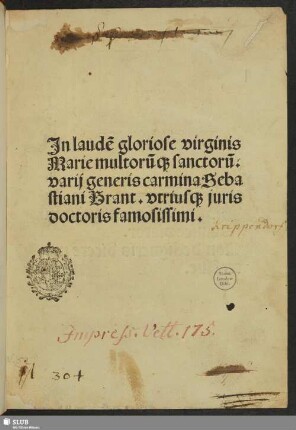 In laudē gloriose virginis
Marie multorūqꝫ sanctorū.
varij generis carmina Seba
stiani Brant. vtriusqꝫ juris
doctoris famosissimi.
Krippendorf
Impress. Vett. 175.
304
SLUB